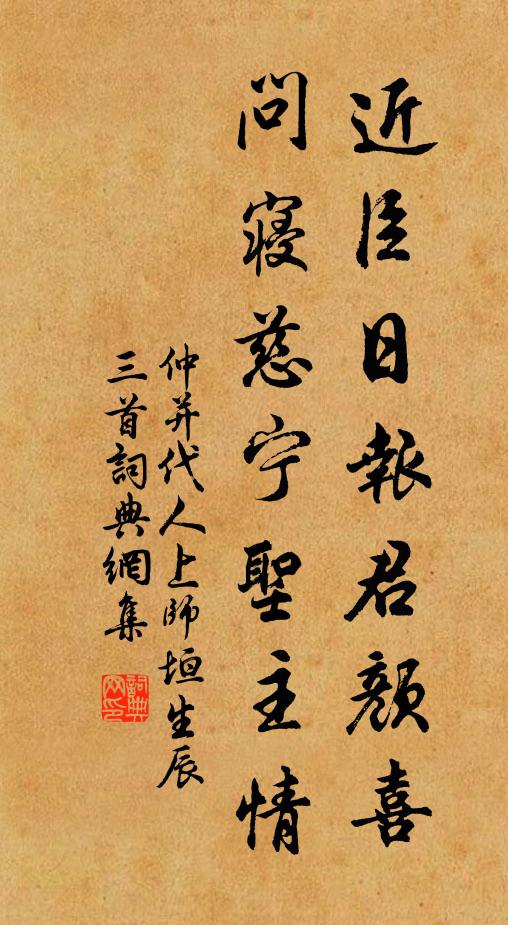 近臣日報君顏喜
問寢慈宁聖主情
仲并代人上師垣生辰
三首詞典網集
詞典網印